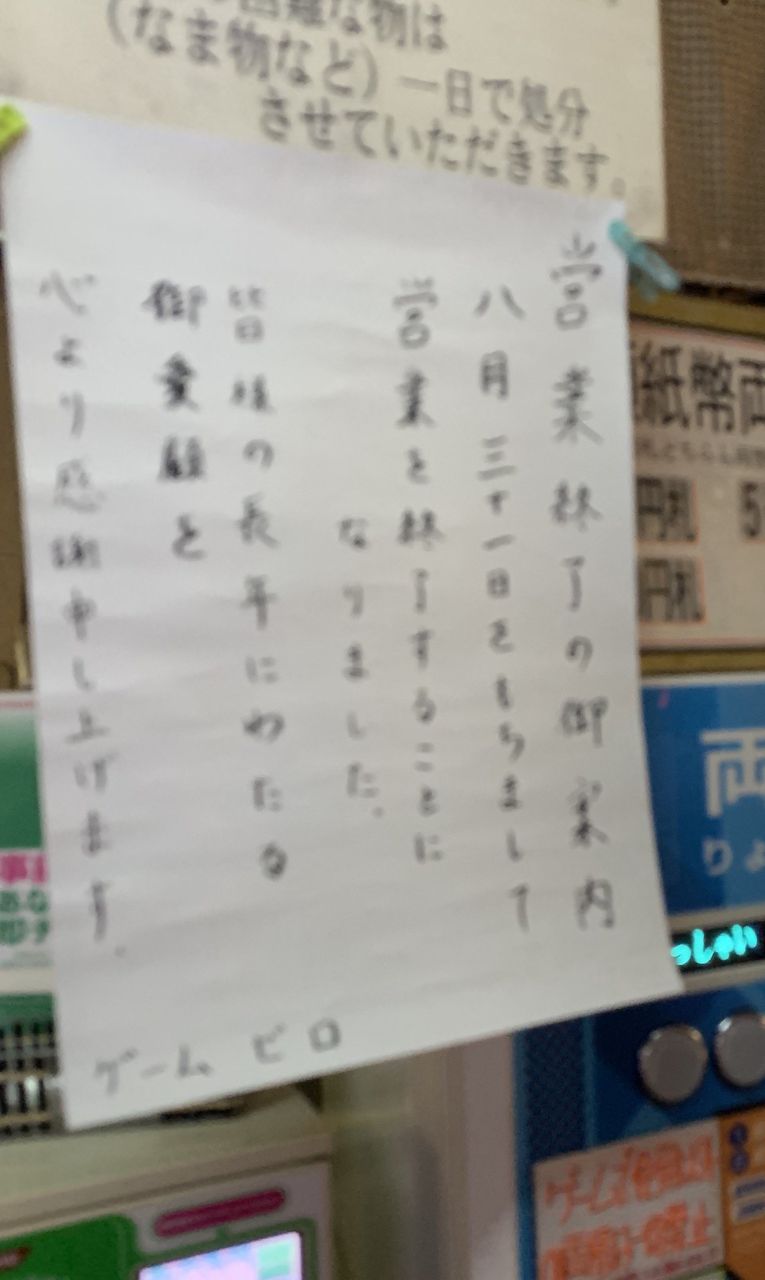 困難な物は
(なま物など)一日で処分
させていただきます。
営業終了の御案内
八月三十一日をもちまして
営業を終了することに
なりました。
皆様の長年にわたる
御愛顧を
心より感謝申し上げます。
ゲームピロ
紙幣両
円札
円札
両
りょ
っしゃい